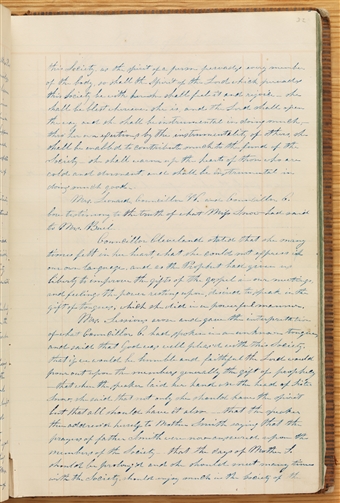 this Society as the spirit of a person pervades every member
of the body so shall the Spirit of the Lord which pervades
this Society be with her she shall feel it and rejoice she
shall be blest wherever she is and the Lord shall open
the way and she shall be instrumental in doing much
thro' her own exertions by the instrumentality of others she
shall be enabled to contribute much to the fund of the
Society she shall warm up the hearts of those who are
cold and dormant and shall be instrumental in
doing much good.
Mrs. Councillor W. and Councillor C.
bore testimony to the truth of what Miss Snow had said
to Mrs Buel.
Councillor Cleaveland stated that she many
times felt in her heart what she could not express in
our own language and as the Prophet had given us
liberty to improve the gifts of the gospel in our meetings
and feeling the power resting upon desired to speak in the
gift of tongues which she did in a powerful manner.
Mrs Sessions arose and gave the interpretation
of what Councillor C. had spoken in an unknown tongue
and said that God was well pleased with this Society,
that if we would be humble and faithful the Lord would
pour out upon the members generally the gift of prophecy
that when the speaker laid her hand on the head of Sister
Snow, she said that not only she should have the spirit
but that all should have it also that the speaker
then addressed herself to Mother Smith saying that the
prayers of father Smith were now answered upon the
members of the Society that the days of Mother S.
should be prolong'd and she should meet many times
with the Society, should enjoy much in the Society of the